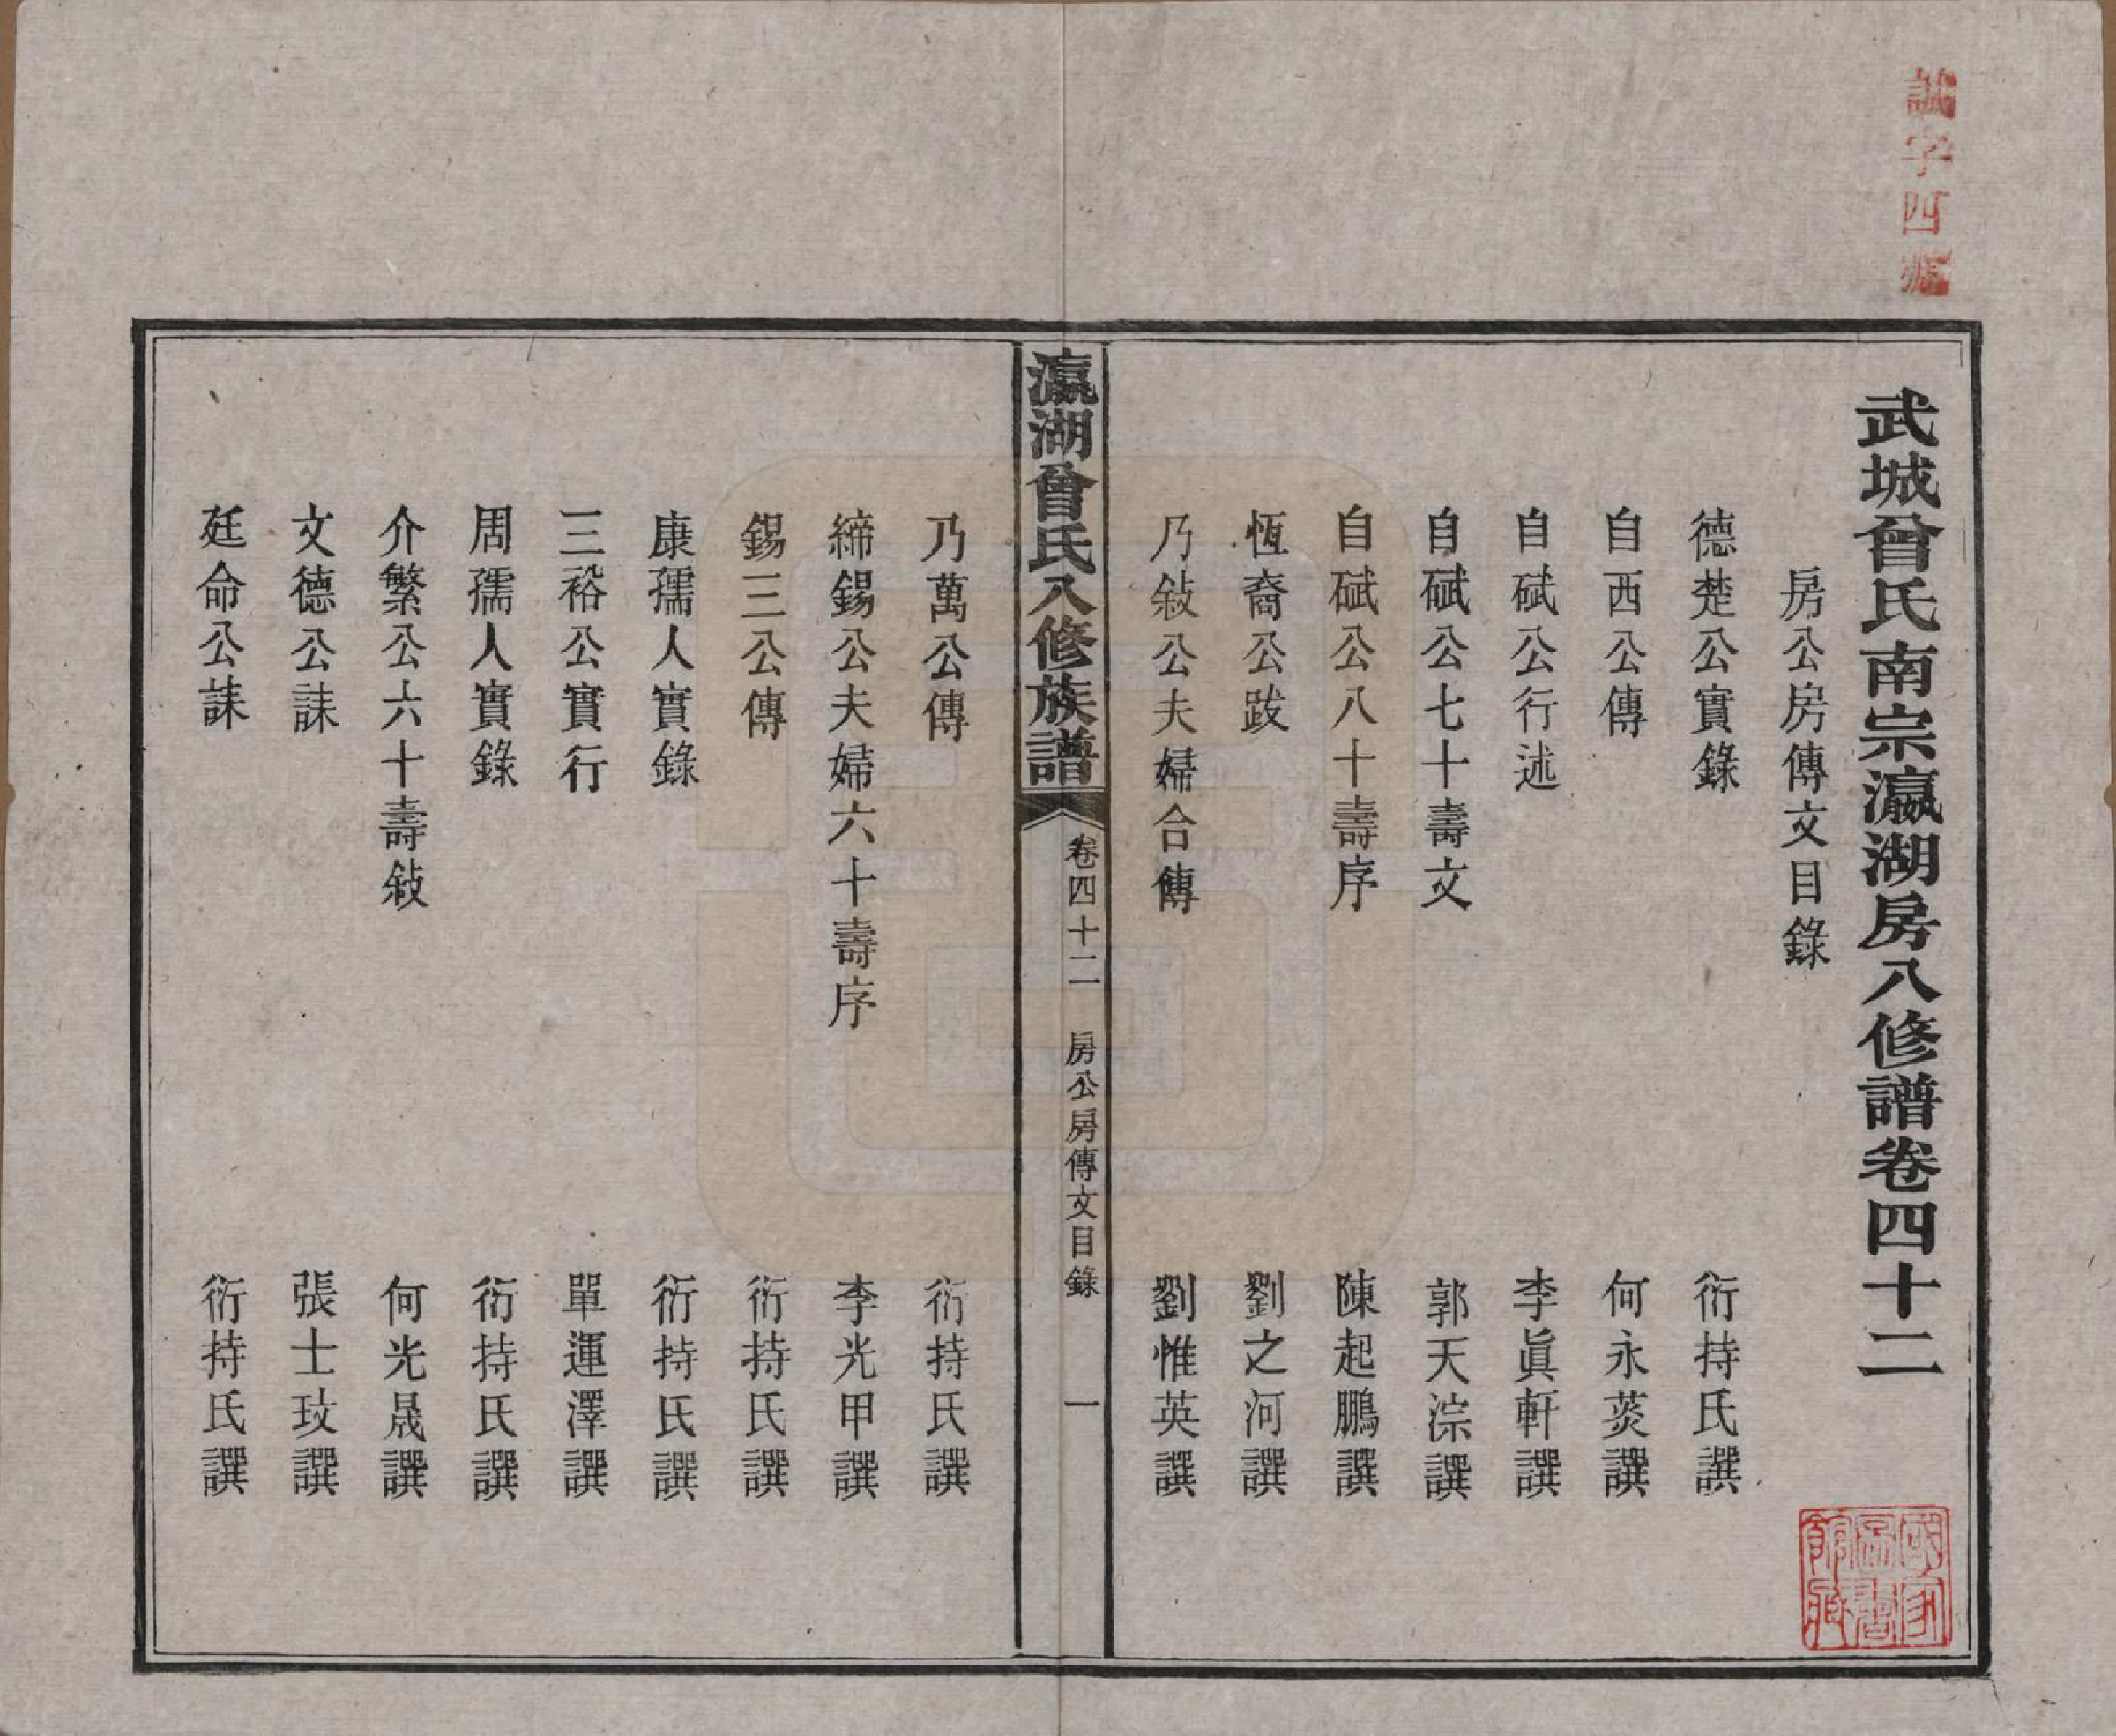 誠字四號
武城曾氏南宗瀛湖房八修譜卷四十二
房公房傳文目錄
德楚公實錄　衍持氏譔
自西公傳　何永荻譔
自碔公行述　李眞軒譔
自碔公七十壽文　郭天淙譔
自碔公八十壽序　陳起鵬譔
恆裔公跋　劉之河譔
乃敍公夫婦合傳　劉惟英譔
瀛湖曾氏八修族譜　卷四十二　房公房傳文目錄　一
乃萬公傳　衍持氏譔
締錫公夫婦六十壽序　李光甲譔
錫三公傳　衍持氏譔
康孺人實錄　衍持氏譔
三裕公實行　單運澤譔
周孺人實錄　衍持氏譔
介繁公六十壽敍　何光晟譔
文德公誄　張士玟譔
廷命公誄　衍持氏譔
國家圖書館藏